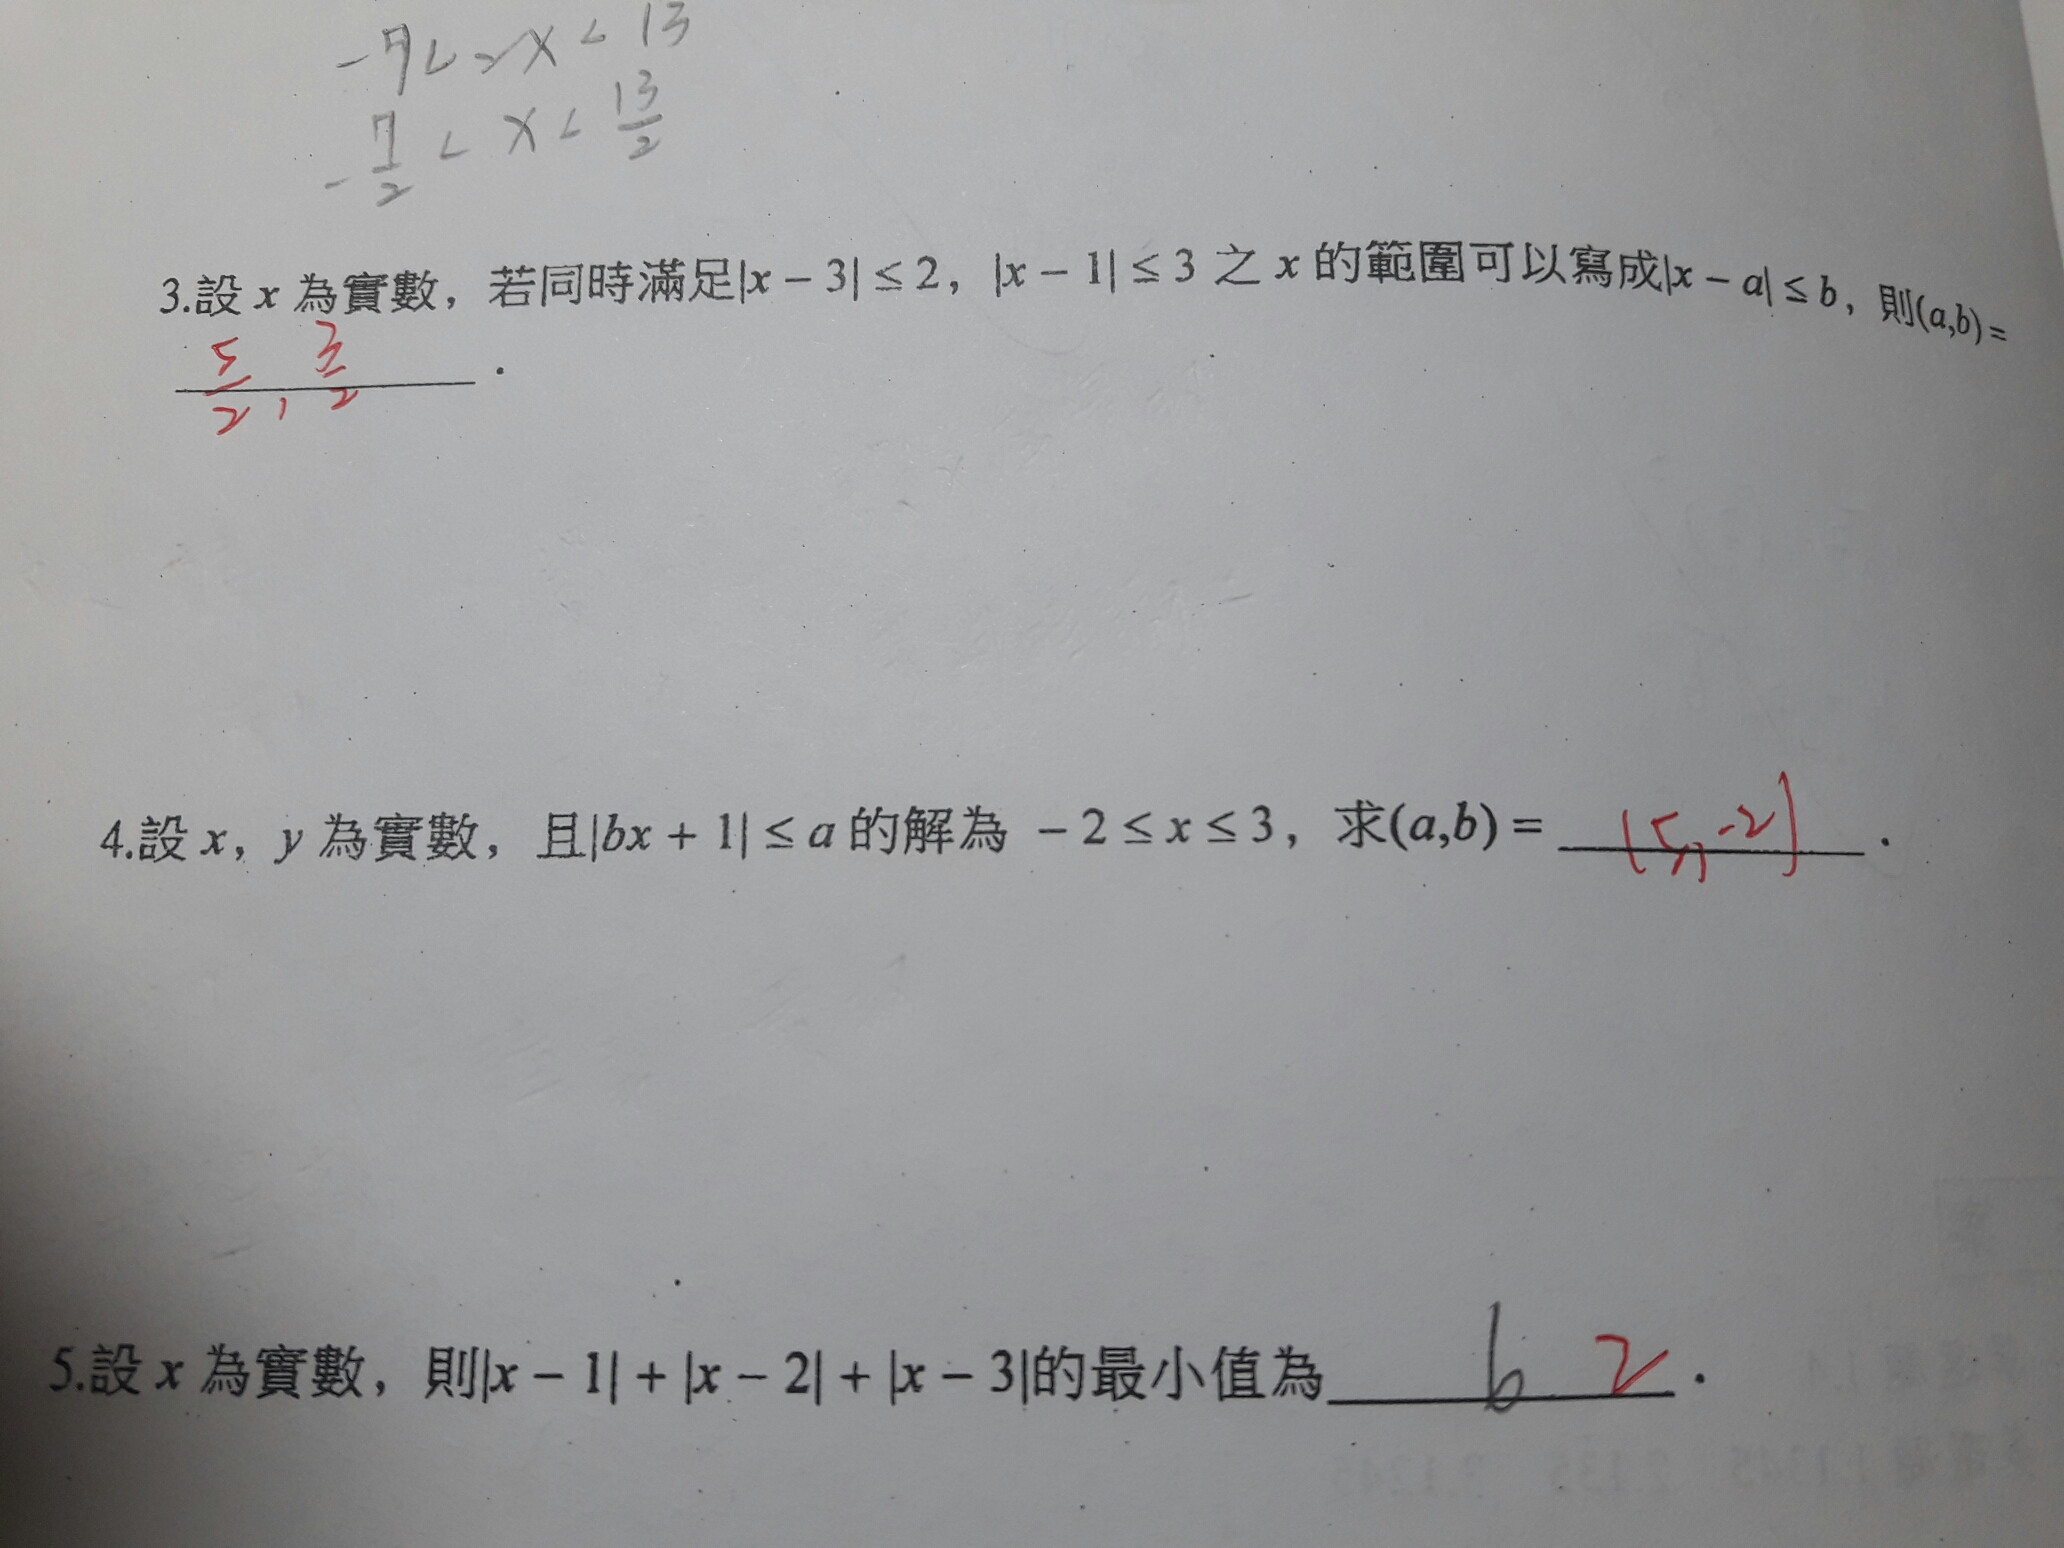 -7<2x<13
-7/2 < x < 13/2
3.設 x 為實數，若同時滿足|x − 3| ≤ 2，|x − 1| ≤ 3 之 x 的範圍可以寫成|x − a| ≤ b，則(a,b) =
5/2, 3/2 .
4.設 x，y 為實數，且|bx + 1| ≤ a 的解為 − 2 ≤ x ≤ 3，求(a,b) = (5,-2) .
5.設 x 為實數，則|x − 1| + |x − 2| + |x − 3|的最小值為 6 2 .